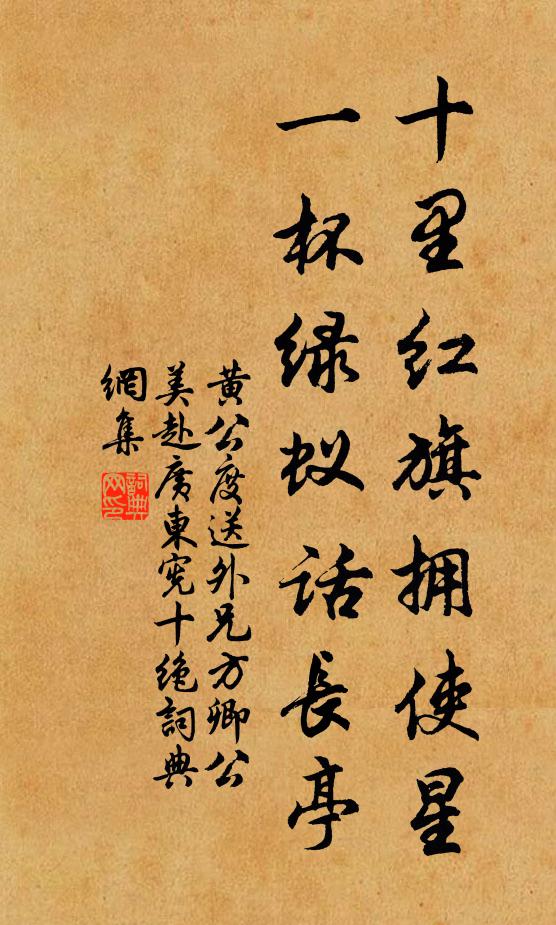 十里红旗拥使星
一杯绿蚁话長亭
黄公度送外兄方卿公
美赴廣東宪十绝詞典
網集
詞典
网印